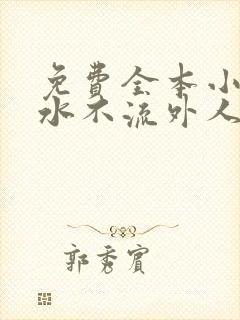 免費全本小
水不流外人
郭秀賓